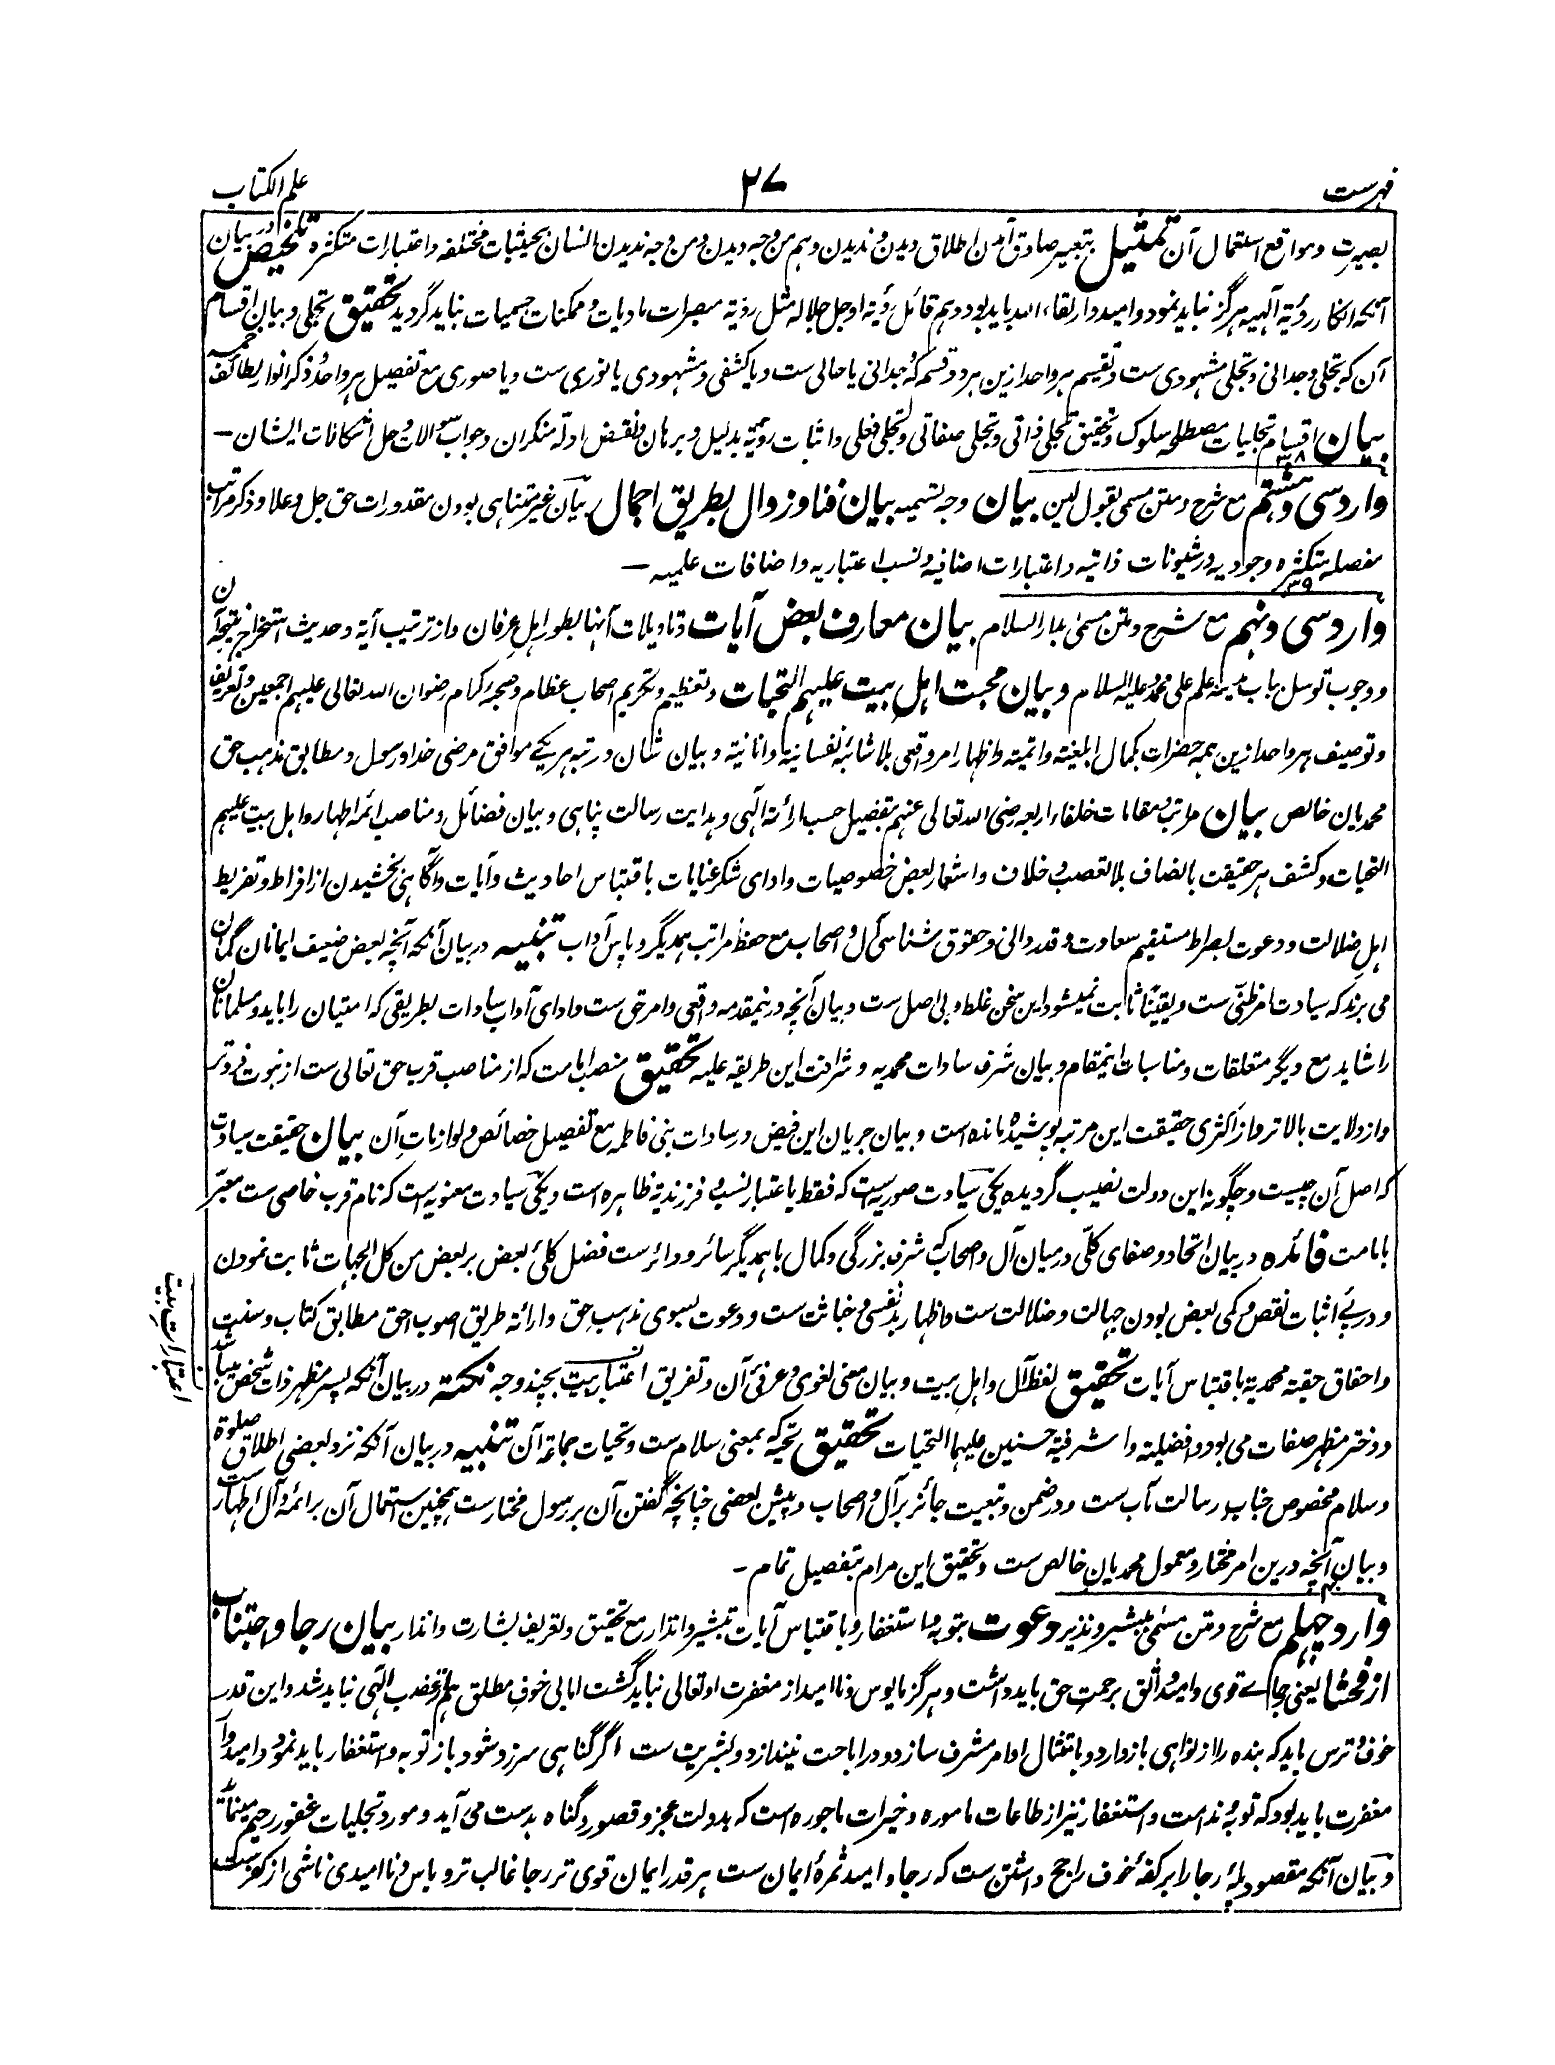 فہرست
۲۷
علم الکتاب
بصیرت و مواقع استعمال آن تمثیل بتعبیر صادق آمدن اطلاق دیدن و ندیدن و ہم من وجہ دیدن و من وجہ ندیدن انسان بحیثیات مختلفہ و اعتبارات متکثرہ تلخیص در بیان
آنکہ انکار رؤیۃ الٰہیہ ہرگز نباید نمود و امیدوار لقاء اللہ باید بود و ہم قائل رؤیۃ او جل جلالہ مثل رؤیۃ مبصرات مادیات و ممکنات جسمیات نباید گردید تحقیق تجلی و بیان اقسام
آن کہ تجلی وجدانی و تجلی مشہودی ست و تقسیم ہر واحد ازین ہر دو قسم کہ وجدانی یا حالی ست و یا کشفی و مشہودی یا نوری ست و یا صوری مع تفصیل ہر واحد و ذکر انوار لطائف خمسہ
بیان اقسام تجلیات مصطلحہ سلوک و تحقیق تجلی ذاتی و تجلی صفاتی و تجلی فعلی و اثبات رویۃ بدلیل و برہان و نقض ادلہ منکران و جواب سوالات و حل اشکالات ایشان —
۳۸
وارد سی و ہشتم مع شرح و متن مسمی بقول لین بیان وجہ تسمیہ بیان فنا و زوال بطریق اجمال بیان غیر متناہی بودن مقدورات حق جل و علا و ذکر مراتب
مفصلہ متکثرہ وجودیہ و شیونات ذاتیہ و اعتبارات اضافیہ و نسب اعتباریہ و اضافات علمیہ —
۳۹
وارد سی و نہم مع شرح و متن مسمی بدار السلام بیان معارف بعض آیات و تاویلات آنہا بطور اہل عرفان و از ترتیب آیۃ و حدیث استخراج نتیجہ آن
و وجوب توسل بباب مدینۃ علم علی محمد و علیہ السلام و بیان محبت اہل بیت علیہم التحیات و تعظیم و تکریم اصحاب عظام و صحبہ کرام رضوان اللہ تعالی علیہم اجمعین و تعریف
و توصیف ہر واحد ازین ہمہ حضرات بکمال ابلغیتہ و اتمیتہ و اظہار امر واقعی بلا شائبہ نفسانیۃ و انانیۃ و بیان شان و رتبہ ہر یکے موافق مرضی خدا و رسول و مطابق مذہب حق
محمدیان خالص بیان مراتب و مقامات خلفاء اربعہ رضی اللہ تعالی عنہم بتفصیل حسب ارائۃ الٰہی و ہدایت رسالت پناہی و بیان فضائل و مناصب ائمہ اطہار و اہل بیت علیہم
التحیات و کشف ہر حقیقت بانصاف بلا تعصب و خلاف و اشعار بعض خصوصیات و ادای شکر عنایات باقتباس احادیث و آیات و آگاہی بخشیدن از افراط و تفریط
اہل ضلالت و دعوت بصراط مستقیم سعادت و قدردانی و حقوق شناسی آل و اصحاب مع حفظ مراتب ہمدیگر و پاس آداب تنبیہ در بیان آنکہ آنچہ بعض ضعیف ایمانان گمان
می برند کہ سیادت امر ظنی ست و یقینًا ثابت نمیشود این سخن غلط و بی اصل ست و بیان آنچہ درینمقدمہ واقعی و امر حق ست و ادای آداب سادات بطریقی کہ امتیان را باید و مسلمانان
را شاید مع دیگر متعلقات و مناسبات اینمقام و بیان شرف سادات محمدیہ و شرافت این طریقہ علیہ تحقیق منصب امامت کہ از مناصب قرب حق تعالی ست از نبوت فروتر
و از ولایت بالاتر و از اکثری حقیقت این مرتبہ پوشیدہ ماندہ است و بیان جریان این فیض در سادات بنی فاطمہ مع تفصیل خصائص و لوازمات آن بیان حقیقت سیادت
کہ اصل آن چیست و چگونہ این دولت نصیب گردیدہ یکی سیادت صوریہ است کہ فقط باعتبار نسب و فرزندیۃ ظاہرہ است و یکی سیادت معنویہ است کہ نام قرب خاصی ست معبّر
بامامت فائدہ در بیان اتحاد و صفای کلّی درمیان آل و اصحاب کہ شرف بزرگی و کمال باہمدیگر سائر و دائر ست فضل کلی بعض بر بعض من کل الجہات ثابت نمودن
و درپئے اثبات نقص و کمی بعض بودن جہالت و ضلالت ست و اظہار بدنفسی و خباثت ست و دعوت بسوی مذہب حق و ارائۃ طریق اصوب احق مطابق کتاب و سنت
و احقاق حقیۃ محمدیۃ باقتباس آیات تحقیق لفظ آل و اہل بیت و بیان معنی لغوی و عرفی آن و تفریق اعتبارات بیت بچند وجہ نکتہ در بیان آنکہ پسر مظہر ذات شخص میباشد
و دختر مظہر صفات می بود و افضلیۃ و اشرفیۃ حسنین علیہما التحیات تحقیق تحیۃ کہ بمعنی سلام ست و تحیات جماعۃ آن تنبیہ در بیان آنکہ نزد بعضی اطلاق صلوۃ
و سلام مخصوص جناب رسالت مآب ست و در ضمن و تبعیت جائز بر آل و اصحاب و پیش بعضی چنانچہ گفتن آن بر رسول مختار ست ہمچنین استعمال آن بر ائمہ و آل اطہار ست
و بیان آنچہ درین امر مختار و معمول محمدیان خالص ست و تحقیق این مرام بتفصیل تمام —
۴۰
وارد چہلم مع شرح و متن مسمی مبشر و نذیر دعوت بتوبہ و استغفار و باقتباس آیات تبشیر و انذار مع تحقیق و تعریف بشارت و انذار بیان رجا و اجتناب
از فحشا یعنی رجاے قوی و امید واثق برحمت حق باید داشت و ہرگز مایوس و ناامید از مغفرت او تعالی نباید گشت اما بی خوف مطلق ہم از غضب الٰہی نباید شد و این قدر
خوف و ترس باید کہ بندہ را از نواہی باز دارد و بامتثال اوامر مشرف سازد و در اباحت نیندازد و بشریت ست اگر گناہی سرزد شود باز توبہ و استغفار باید نمود و امیدوار
مغفرت باید بود کہ توبہ و ندامت و استغفار نیز از طاعات مامورہ و خیرات ماجورہ است کہ بدولت عجز و قصور و گناہ بدست می آید و مورد تجلیات غفور رحیم مینماید
و بیان آنکہ مقصود پلۂ رجا را بر کفۂ خوف راجح داشتن ست کہ رجا و امید ثمرۂ ایمان ست ہر قدر ایمان قوی تر رجا غالب تر و یاس و ناامیدی ناشی از کفر ست
اعتبارات بیت